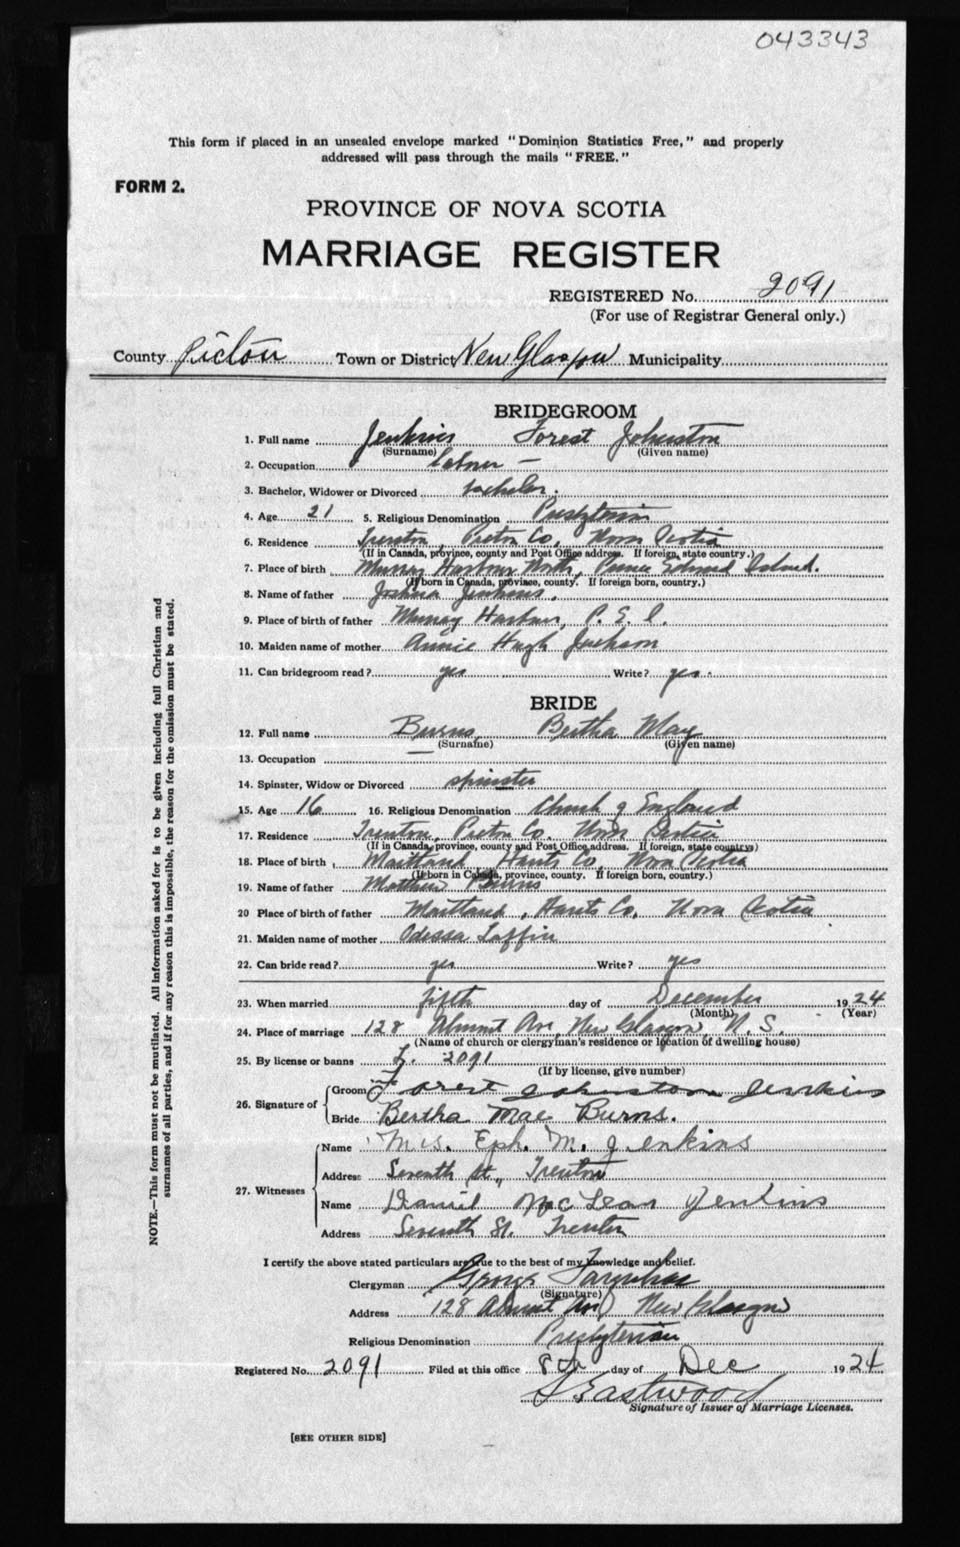 043343
This form if placed in an unsealed envelope marked "Dominion Statistics Free," and properly
addressed will pass through the mails "FREE."
FORM 2.
PROVINCE OF NOVA SCOTIA
MARRIAGE REGISTER
REGISTERED No. 2091
(For use of Registrar General only.)
County Pictou Town or District New Glasgow Municipality
BRIDEGROOM
1. Full name Jenkins Forest Johnston
(Surname) (Given name)
2. Occupation Labourer
3. Bachelor, Widower or Divorced bachelor.
4. Age 21 5. Religious Denomination Presbyterian
6. Residence Trenton, Pictou Co. Nova Scotia
(If in Canada, province, county and Post Office address. If foreign, state country.)
7. Place of birth Murray Harbour North, Prince Edward Island.
(If born in Canada, province, county. If foreign born, country.)
8. Name of father Joshua Jenkins.
9. Place of birth of father Murray Harbour, P. E. I.
10. Maiden name of mother Annie Hugh Jackson
11. Can bridegroom read? yes Write? yes.
BRIDE
12. Full name Burns, Bertha May
(Surname) (Given name)
13. Occupation
14. Spinster, Widow or Divorced spinster
15. Age 16 16. Religious Denomination Church of England
17. Residence Trenton, Pictou Co. Nova Scotia
(If in Canada, province, county and Post Office address. If foreign, state countrys)
18. Place of birth Maitland, Hants Co, Nova Scotia
(If born in Canada, province, county. If foreign born, country.)
19. Name of father Matthew Burns
20 Place of birth of father Maitland, Hants Co, Nova Scotia
21. Maiden name of mother Odessa Laffin
22. Can bride read? yes Write? yes
23. When married fifth day of December 1924
(Month) (Year)
24. Place of marriage 128 Almont Av, New Glasgow, N. S.
(Name of church or clergyman's residence or location of dwelling house)
25. By license or banns L. 2091
(If by license, give number)
26. Signature of Groom Forest Johnston Jenkins
Bride Bertha Mae Burns.
27. Witnesses Name Mrs. Eph. M. Jenkins
Address Seventh St., Trenton
Name Daniel McLean Jenkins
Address Seventh St. Trenton
I certify the above stated particulars are true to the best of my knowledge and belief.
Clergyman George Farquhar
(Signature)
Address 128 Almont Av, New Glasgow
Religious Denomination Presbyterian
Registered No. 2091 Filed at this office 8th day of Dec 1924
Eastwood
Signature of Issuer of Marriage Licenses.
[SEE OTHER SIDE]
NOTE.—This form must not be mutilated. All information asked for is to be given including full Christian and
surnames of all parties, and if for any reason this is impossible, the reason for the omission must be stated.